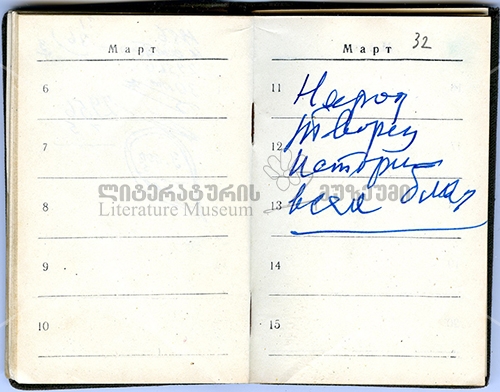 Март
6
7
8
9
10
Март 32
11
Народ
творец
12
истории
13
всех благ
14
15
ლიტერატურის მუზეუმი
Literature Museum